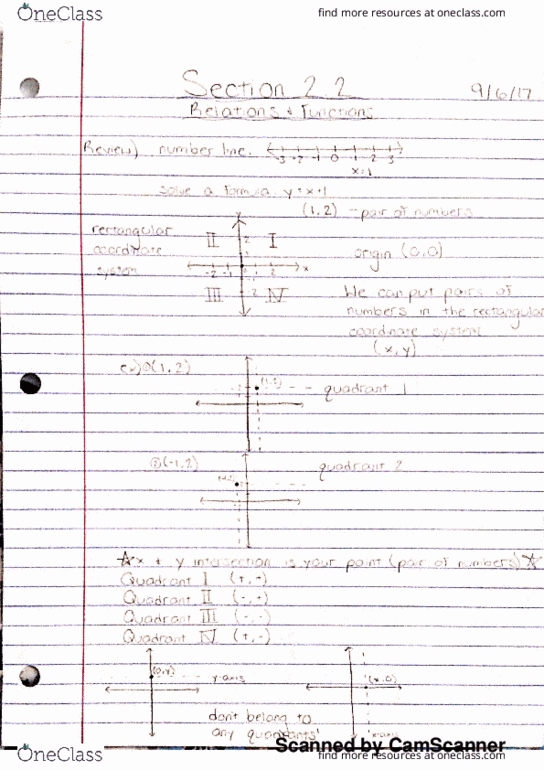 OneClass
find more resources at oneclass.com
Section 2.2
9/6/17
Relations & Functions
Review) number line.
-3 -2 -1 0 1 2 3
x=1
solve a formula y=x+1
(1,2) - pair of numbers
rectangular coordinate system
y
II I
2
1
-2 -1 1 2 x
III IV
origin (0,0)
We can put pairs of
numbers in the rectangular
coordinate system
(x,y)
ex) ① (1,2)
(1,2)
quadrant 1
② (-1,2)
quadrant 2
☆ x + y intersection is your point (pair of numbers) ☆
Quadrant I (+,+)
Quadrant II (-,+)
Quadrant III (-,-)
Quadrant IV (+,-)
y-axis
(x,0)
x-axis
don't belong to
any quadrants
Scanned by CamScanner
OneClass
find more resources at oneclass.com